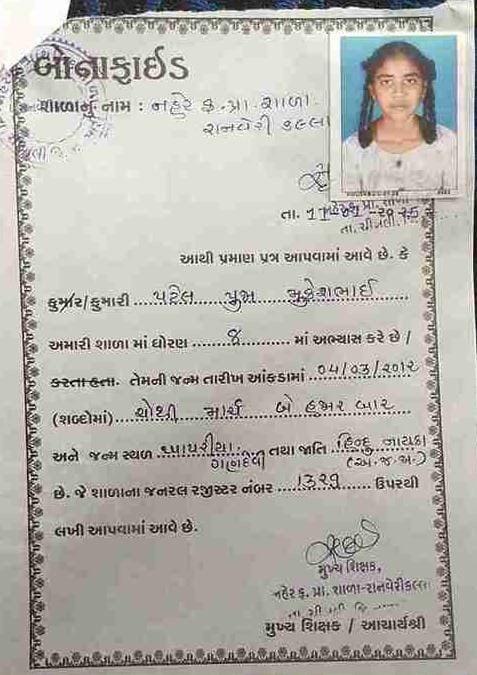 બોનાફાઈડ
શાળાનું નામ : નહેરુ ક.પ્રા.શાળા.
રાનવેરી કલ્લા
તા.
તા. ચીખલી
આથી પ્રમાણ પત્ર આપવામાં આવે છે. કે
કુમાર/કુમારી પટેલ મુકેશભાઈ
અમારી શાળા માં ધોરણ ૪ માં અભ્યાસ કરે છે /
કરતા હતા. તેમની જન્મ તારીખ આંકડામાં ૦૪/૦૩/૨૦૧૨
(શબ્દોમાં) ચોથી માર્ચ બે હજાર બાર
અને જન્મ સ્થળ તથા જાતિ હિન્દુ નાયકા
ગણદેવી (અ.જ.જા.)
છે. જે શાળાના જનરલ રજીસ્ટર નંબર ઉપરથી
લખી આપવામાં આવે છે.
મુખ્ય શિક્ષક,
નહેરુ ક. પ્રા. શાળા-રાનવેરીકલ્લા
મુખ્ય શિક્ષક / આચાર્યશ્રી